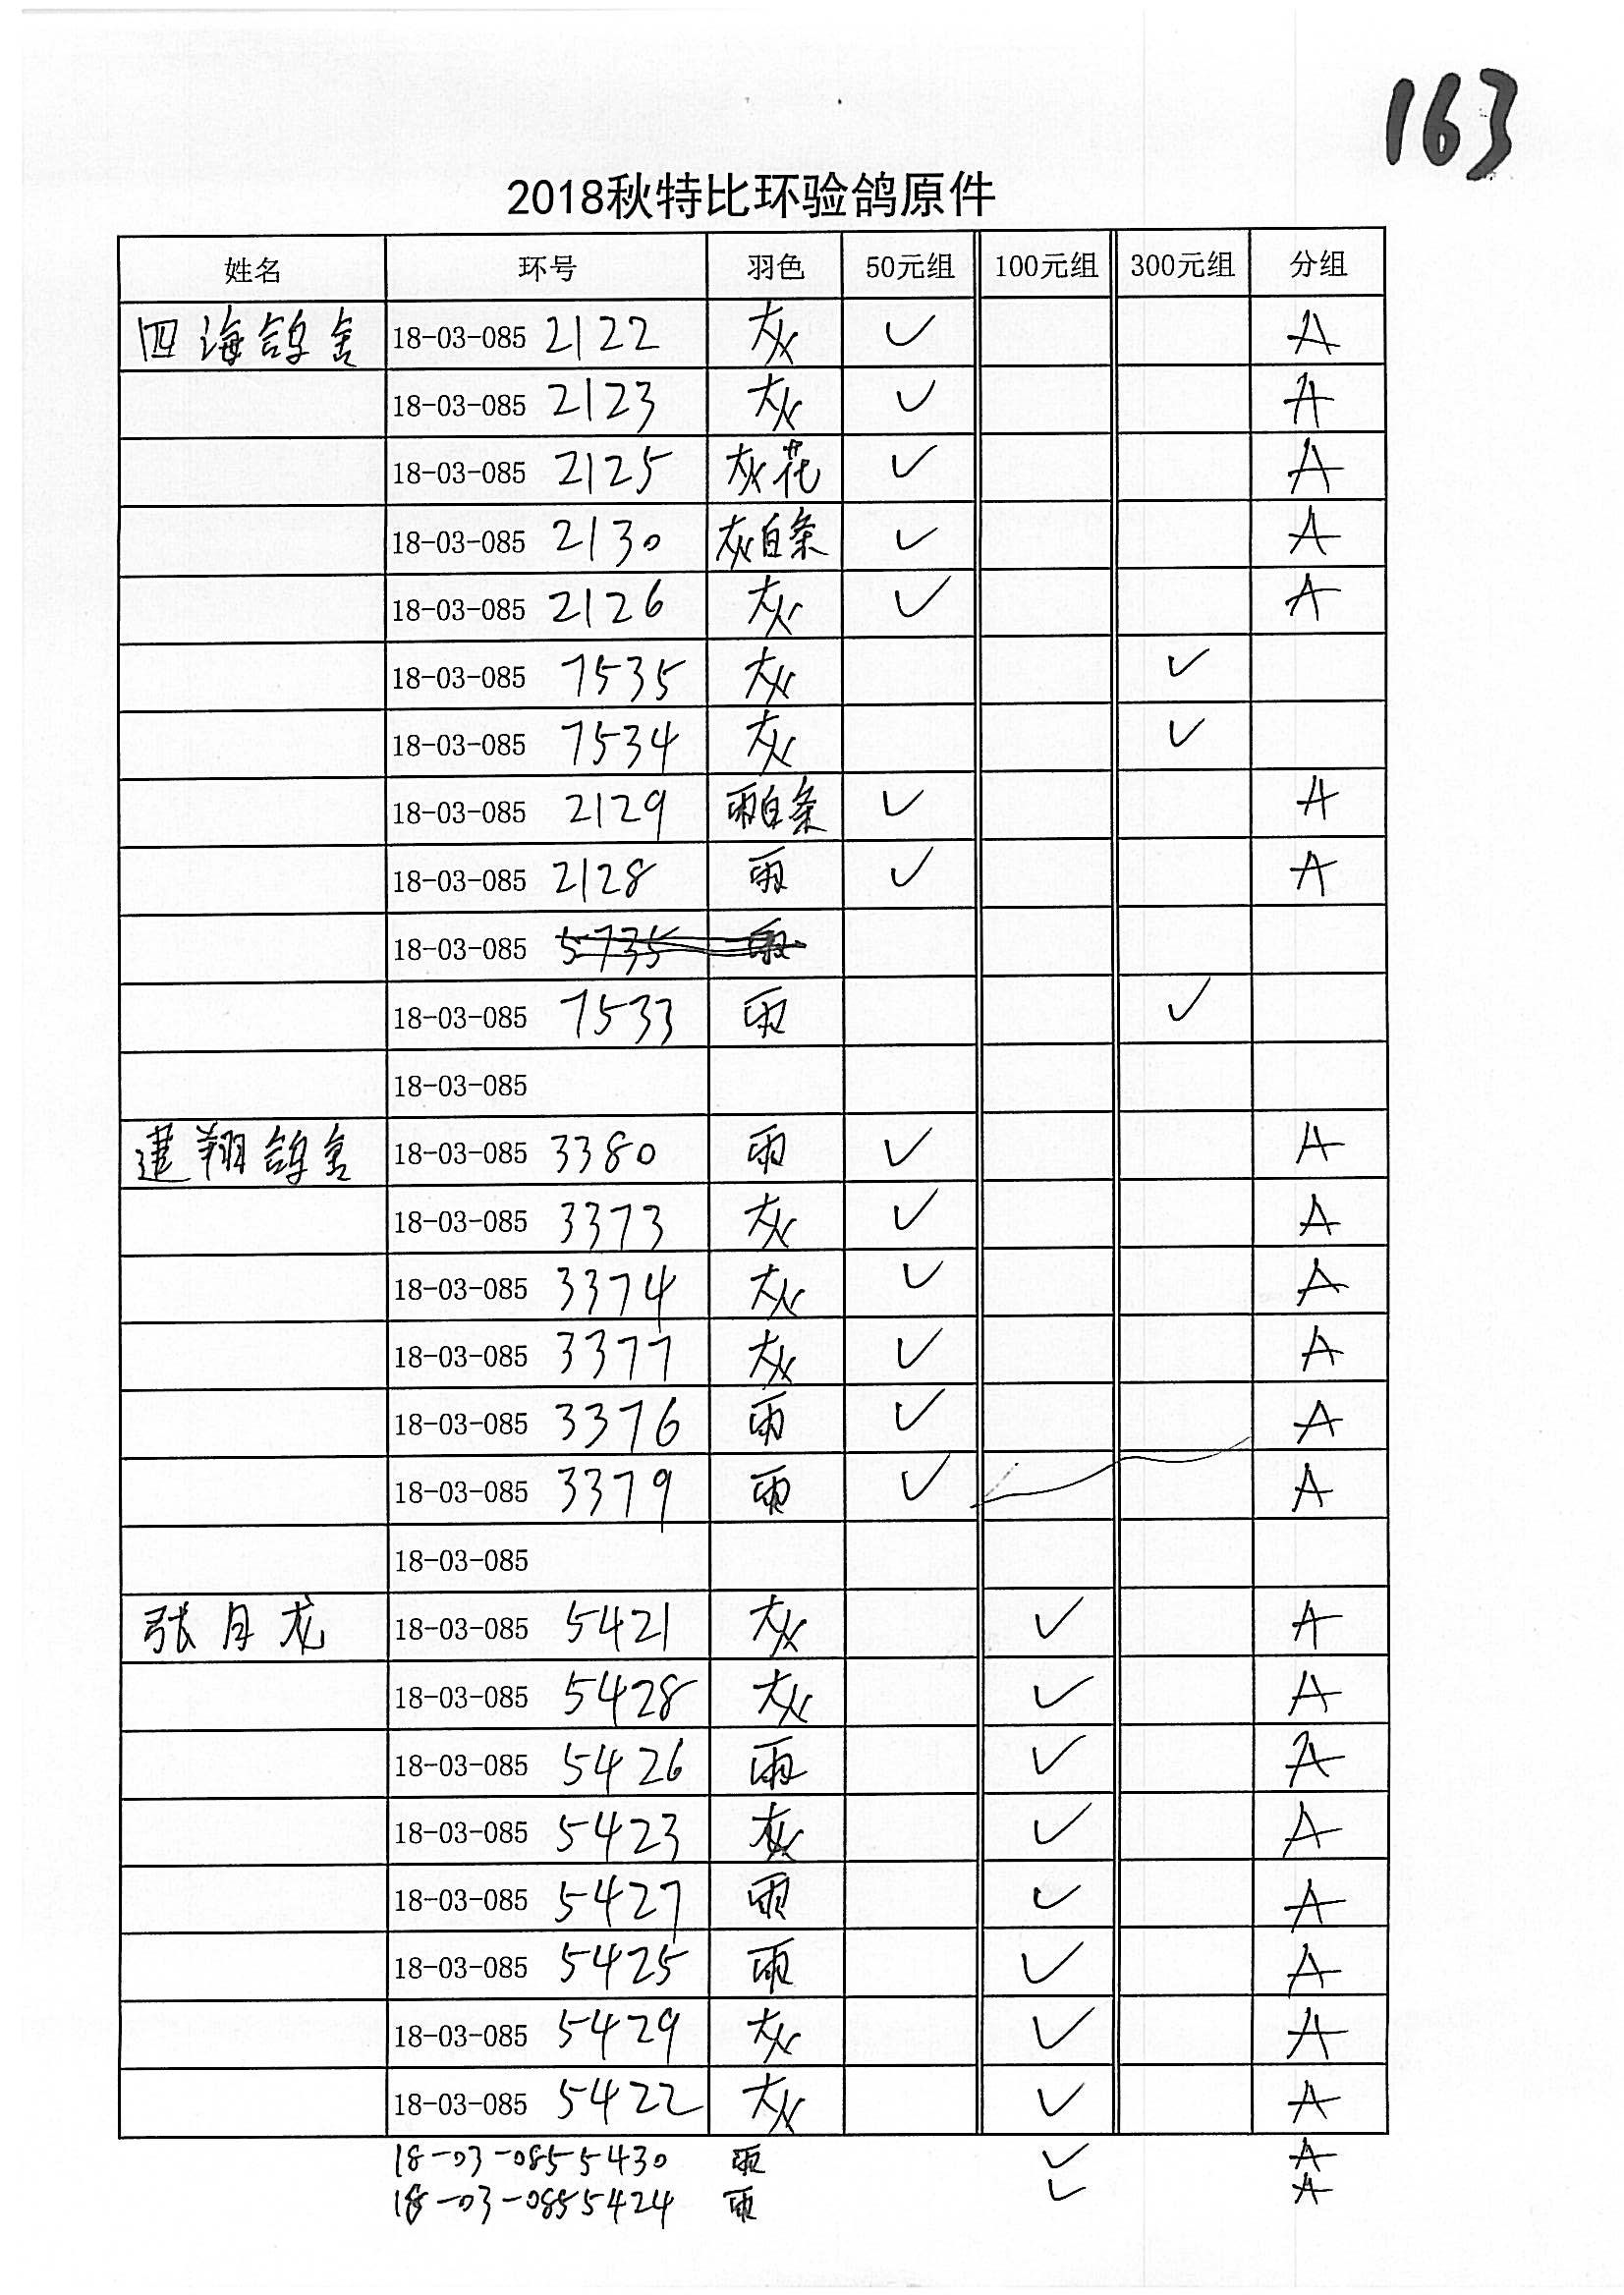 163
2018秋特比环验鸽原件
姓名 环号 羽色 50元组 100元组 300元组 分组
四海鸽舍 18-03-085 2122 灰 ✓ A
18-03-085 2123 灰 ✓ A
18-03-085 2125 灰花 ✓ A
18-03-085 2130 灰白条 ✓ A
18-03-085 2126 灰 ✓ A
18-03-085 7535 灰 ✓
18-03-085 7534 灰 ✓
18-03-085 2129 雨白条 ✓ A
18-03-085 2128 雨 ✓ A
18-03-085 5735 雨
18-03-085 7533 雨 ✓
18-03-085
建翔鸽舍 18-03-085 3380 雨 ✓ A
18-03-085 3373 灰 ✓ A
18-03-085 3374 灰 ✓ A
18-03-085 3377 灰 ✓ A
18-03-085 3376 雨 ✓ A
18-03-085 3379 雨 ✓ A
18-03-085
张月龙 18-03-085 5421 灰 ✓ A
18-03-085 5428 灰 ✓ A
18-03-085 5426 雨 ✓ A
18-03-085 5423 灰 ✓ A
18-03-085 5427 雨 ✓ A
18-03-085 5425 雨 ✓ A
18-03-085 5429 灰 ✓ A
18-03-085 5422 灰 ✓ A
18-03-0855430 雨 ✓ A
18-03-0855424 雨 ✓ A